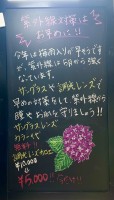 紫外線対策は
お早めに!!
今年は梅雨入りが早そうですが、紫外線は5月から強く
なっています。
サングラスや調光レンズで
早めの対策をして紫外線から
瞳やお肌を守りましょう!!
サングラスレンズ
カラー
調光レンズ
¥5,000